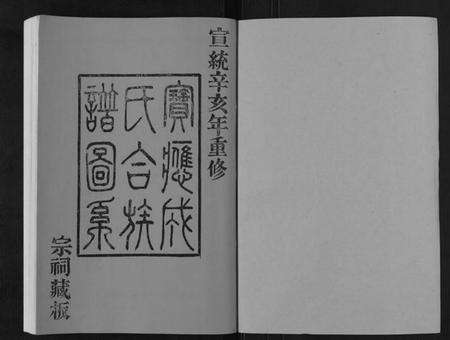 宣統辛亥年重修
寶應成
氏合族
譜圖系
宗祠藏板